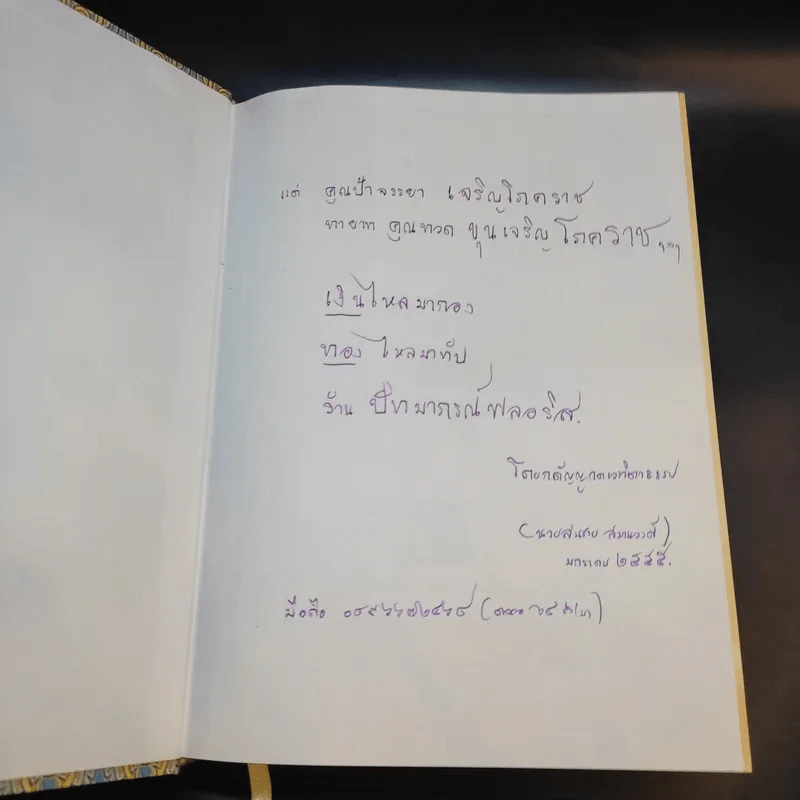 แด่ คุณป้าจรรยา เจริญโภคราช
ทายาท คุณทวด ขุนเจริญโภคราช
เงินไหลมากอง
ทองไหลมาทับ
ร้าน ปัทมาภรณ์ฟลอริส.
โดยกตัญญูกตเวทิตาธรรม
(นายสมชาย สมานวงศ์)
มกราคม ๒๕๕๕.
มือถือ